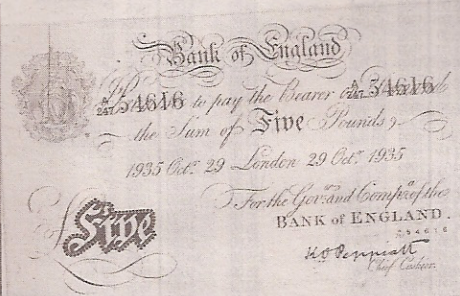 Bank of England
A/247 54616 to pay the Bearer on Demand A/247 54616
the Sum of Five Pounds
1935 Octr. 29 London 29 Octr. 1935
For the Govr. and Compa. of the
BANK of ENGLAND.
54616
Chief Cashier.
Five